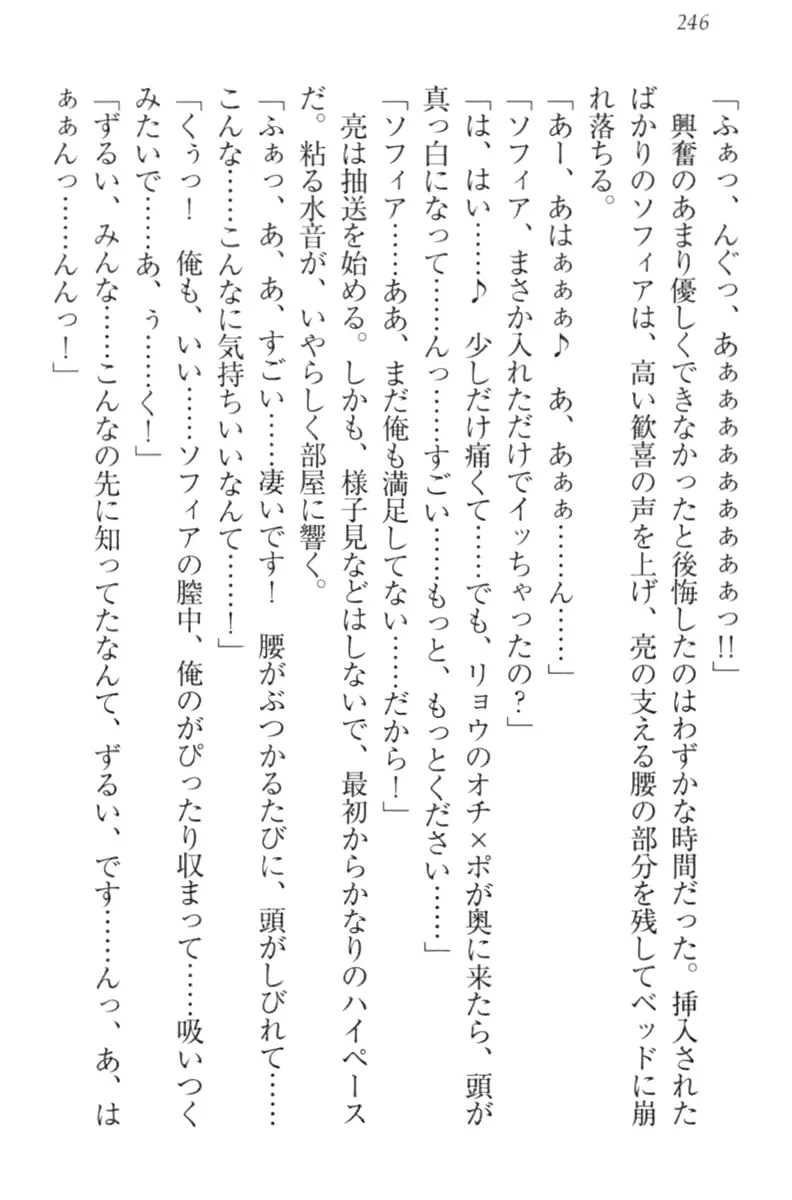 246
「ふぁっ、んぐっ、あぁぁぁぁぁぁぁぁぁぁっ!!」
　興奮のあまり優しくできなかったと後悔したのはわずかな時間だった。挿入された
ばかりのソフィアは、高い歓喜の声を上げ、亮の支える腰の部分を残してベッドに崩
れ落ちる。
「あー、あはぁぁぁ♪　あ、あぁぁ……ん……」
「ソフィア、まさか入れただけでイッちゃったの？」
「は、はい……♪　少しだけ痛くて……でも、リョウのオチ×ポが奥に来たら、頭が
真っ白になって……んっ……すごい……もっと、もっとください……」
「ソフィア……ああ、まだ俺も満足してない……だから！」
　亮は抽送を始める。しかも、様子見などはしないで、最初からかなりのハイペース
だ。粘る水音が、いやらしく部屋に響く。
「ふぁっ、あ、あ、すごい……凄いです！　腰がぶつかるたびに、頭がしびれて……
こんな……こんなに気持ちいいなんて……！」
「くぅっ！　俺も、いい……ソフィアの膣中、俺のがぴったり収まって……吸いつく
みたいで……あ、ぅ……く！」
「ずるい、みんな……こんなの先に知ってたなんて、ずるい、です……んっ、あ、は
ぁぁんっ……んんっ！」